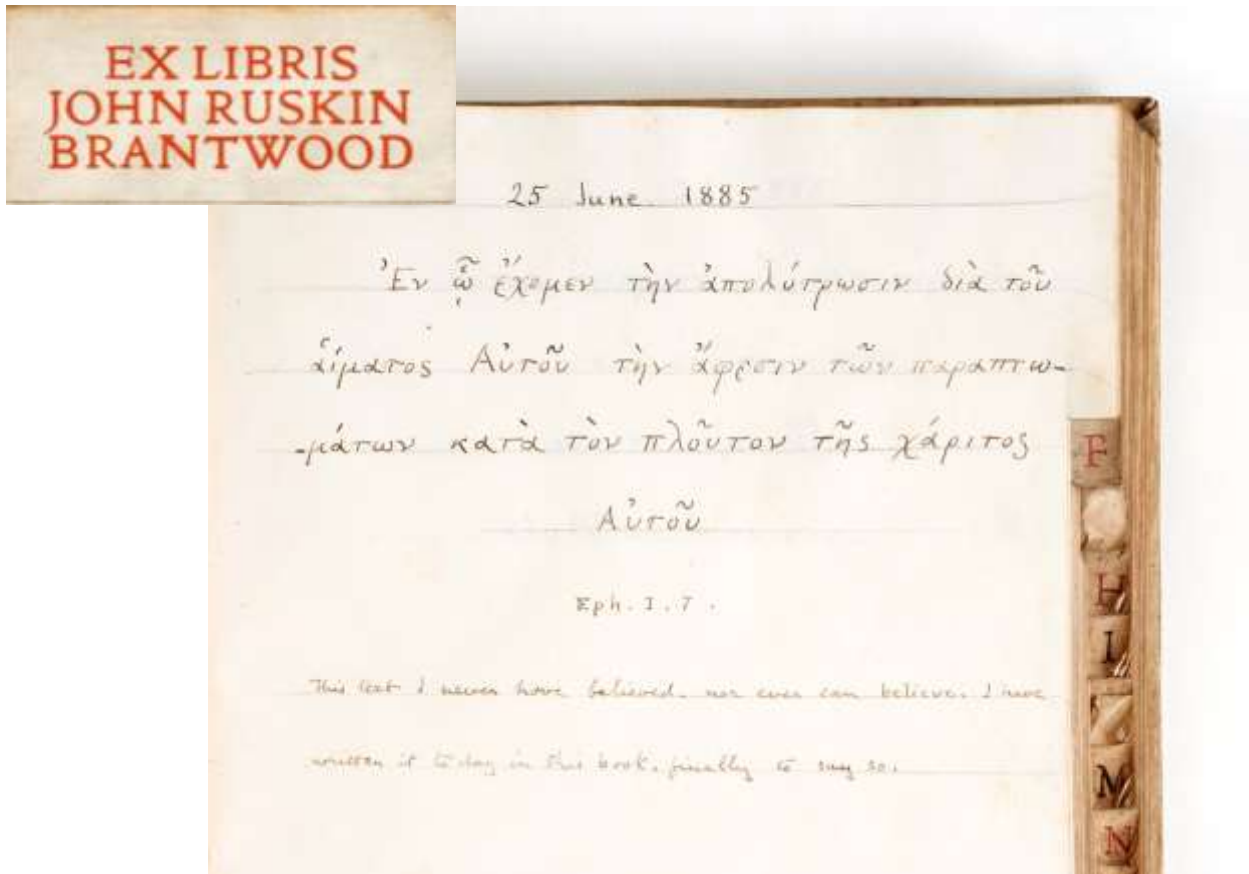 EX LIBRIS
JOHN RUSKIN
BRANTWOOD
25 June 1885
Ἐν ᾧ ἔχομεν τὴν ἀπολύτρωσιν διὰ τοῦ
ἁίματος Αὐτοῦ τὴν ἄφεσιν τῶν παραπτω-
-μάτων κατὰ τὸν πλοῦτον τῆς χάριτος
Αὐτοῦ
Eph. I. 7.
This text I never have believed. nor ever can believe. I have
written it today in this book. finally to say so.
F
H
I
M
N